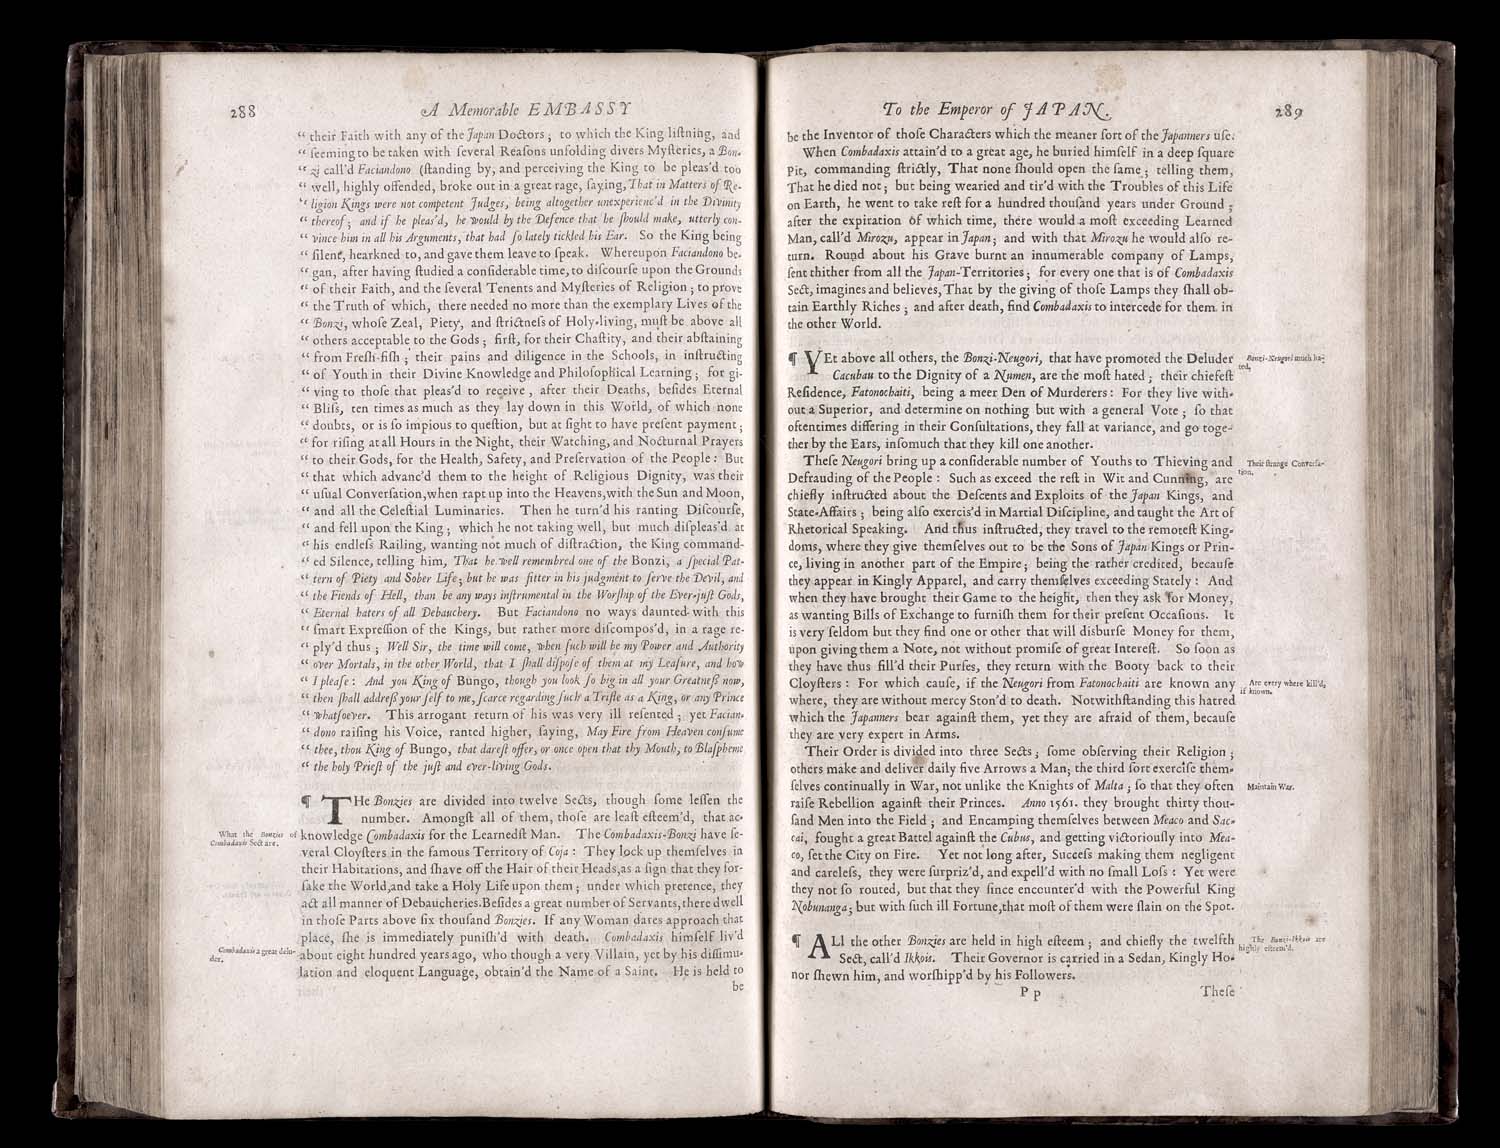 288
A Memorable EMBASSY
“ their Faith with any of the Japan Doctors ; to which the King liſtning, and
“ ſeeming to be taken with ſeveral Reaſons unfolding divers Myſteries, a Bon-
“ zi call'd Faciandono (ſtanding by, and perceiving the King to be pleas'd too
“ well, highly offended, broke out in a great rage, ſaying, That in Matters of Re-
“ ligion Kings were not competent Judges, being altogether unexperienc'd in the Divinity
“ thereof ; and if he pleas'd, he would by the Defence that he ſhould make, utterly con-
“ vince him in all his Arguments, that had ſo lately tickled his Ear. So the King being
“ ſilent, hearkned to, and gave them leave to ſpeak. Whereupon Faciandono be-
“ gan, after having ſtudied a conſiderable time, to diſcourſe upon the Grounds
“ of their Faith, and the ſeveral Tenents and Myſteries of Religion ; to prove
“ the Truth of which, there needed no more than the exemplary Lives of the
“ Bonzi, whoſe Zeal, Piety, and ſtrictneſs of Holy-living, muſt be above all
“ others acceptable to the Gods ; firſt, for their Chaſtity, and their abſtaining
“ from Freſh-fiſh ; their pains and diligence in the Schools, in inſtructing
“ of Youth in their Divine Knowledge and Philoſophical Learning ; for gi-
“ ving to thoſe that pleas'd to receive , after their Deaths, beſides Eternal
“ Bliſs, ten times as much as they lay down in this World, of which none
“ doubts, or is ſo impious to queſtion, but at ſight to have preſent payment ;
“ for riſing at all Hours in the Night, their Watching, and Nocturnal Prayers
“ to their Gods, for the Health, Safety, and Preſervation of the People : But
“ that which advanc'd them to the height of Religious Dignity, was their
“ uſual Converſation, when rapt up into the Heavens, with the Sun and Moon,
“ and all the Celeſtial Luminaries. Then he turn'd his ranting Diſcourſe,
“ and fell upon the King ; which he not taking well, but much diſpleas'd at
“ his endleſs Railing, wanting not much of diſtraction, the King command-
“ ed Silence, telling him, That he well remembred one of the Bonzi, a ſpecial Pat-
“ tern of Piety and Sober Life ; but he was fitter in his judgment to ſerve the Devil, and
“ the Fiends of Hell, than be any ways inſtrumental in the Worſhip of the Ever-juſt Gods,
“ Eternal haters of all Debauchery. But Faciandono no ways daunted with this
“ ſmart Expreſſion of the Kings, but rather more diſcompos'd, in a rage re-
“ ply'd thus ; Well Sir, the time will come, when ſuch will be my Power and Authority
“ over Mortals, in the other World, that I ſhall diſpoſe of them at my Leaſure, and how
“ I pleaſe : And you King of Bungo, though you look ſo big in all your Greatneß now,
“ then ſhall addreß your ſelf to me, ſcarce regarding ſuch a Trifle as a King, or any Prince
“ whatſoever. This arrogant return of his was very ill reſented ; yet Facian-
“ dono raiſing his Voice, ranted higher, ſaying, May Fire from Heaven conſume
“ thee, thou King of Bungo, that dareſt offer, or once open that thy Mouth, to Blaſpheme
“ the holy Prieſt of the juſt and ever-living Gods.
¶ THe Bonzies are divided into twelve Sects, though ſome leſſen the
number. Amongſt all of them, thoſe are leaſt eſteem'd, that ac-
What the Bonzies of Combadaxis Sect are.
knowledge Combadaxis for the Learnedſt Man. The Combadaxis-Bonzi have ſe-
veral Cloyſters in the famous Territory of Coja : They lock up themſelves in
their Habitations, and ſhave off the Hair of their Heads, as a ſign that they for-
ſake the World, and take a Holy Life upon them ; under which pretence, they
act all manner of Debaucheries. Beſides a great number of Servants, there dwell
in thoſe Parts above ſix thouſand Bonzies. If any Woman dares approach that
place, ſhe is immediately puniſh'd with death. Combadaxis himſelf liv'd
Combadaxis a great deluder.
about eight hundred years ago, who though a very Villain, yet by his diſſimu-
lation and eloquent Language, obtain'd the Name of a Saint. He is held to
be
To the Emperor of JAPAN.
289
be the Inventor of thoſe Characters which the meaner ſort of the Japanners uſe.
When Combadaxis attain'd to a great age, he buried himſelf in a deep ſquare
Pit, commanding ſtrictly, That none ſhould open the ſame ; telling them,
That he died not ; but being wearied and tir'd with the Troubles of this Life
on Earth, he went to take reſt for a hundred thouſand years under Ground ;
after the expiration of which time, there would a moſt exceeding Learned
Man, call'd Mirozu, appear in Japan ; and with that Mirozu he would alſo re-
turn. Round about his Grave burnt an innumerable company of Lamps,
ſent thither from all the Japan-Territories ; for every one that is of Combadaxis
Sect, imagines and believes, That by the giving of thoſe Lamps they ſhall ob-
tain Earthly Riches ; and after death, find Combadaxis to intercede for them in
the other World.
¶ YEt above all others, the Bonzi-Neugori, that have promoted the Deluder
Bonzi-Neugori much hated,
Cacubau to the Dignity of a Numen, are the moſt hated ; their chiefeſt
Reſidence, Fatonochaiti, being a meer Den of Murderers : For they live with-
out a Superior, and determine on nothing but with a general Vote ; ſo that
oftentimes differing in their Conſultations, they fall at variance, and go toge-
ther by the Ears, inſomuch that they kill one another.
Theſe Neugori bring up a conſiderable number of Youths to Thieving and
Their ſtrange Converſation.
Defrauding of the People : Such as exceed the reſt in Wit and Cunning, are
chiefly inſtructed about the Deſcents and Exploits of the Japan Kings, and
State-Affairs ; being alſo exercis'd in Martial Diſcipline, and taught the Art of
Rhetorical Speaking. And thus inſtructed, they travel to the remoteſt King-
doms, where they give themſelves out to be the Sons of Japan Kings or Prin-
ce, living in another part of the Empire ; being the rather credited, becauſe
they appear in Kingly Apparel, and carry themſelves exceeding Stately : And
when they have brought their Game to the height, then they ask for Money,
as wanting Bills of Exchange to furniſh them for their preſent Occaſions. It
is very ſeldom but they find one or other that will disburſe Money for them,
upon giving them a Note, not without promiſe of great Intereſt. So ſoon as
they have thus fill'd their Purſes, they return with the Booty back to their
Cloyſters : For which cauſe, if the Neugori from Fatonochaiti are known any
Are every where kill'd, if known.
where, they are without mercy Ston'd to death. Notwithſtanding this hatred
which the Japanners bear againſt them, yet they are afraid of them, becauſe
they are very expert in Arms.
Their Order is divided into three Sects ; ſome obſerving their Religion ;
others make and deliver daily five Arrows a Man ; the third ſort exerciſe them-
ſelves continually in War, not unlike the Knights of Malta ; ſo that they often
Maintain War.
raiſe Rebellion againſt their Princes. Anno 1561. they brought thirty thou-
ſand Men into the Field ; and Encamping themſelves between Meaco and Sac-
cai, fought a great Battel againſt the Cubus, and getting victoriouſly into Mea-
co, ſet the City on Fire. Yet not long after, Succeſs making them negligent
and careleſs, they were ſurpriz'd, and expell'd with no ſmall Loſs : Yet were
they not ſo routed, but that they ſince encounter'd with the Powerful King
Nobunanga ; but with ſuch ill Fortune, that moſt of them were ſlain on the Spot.
¶ ALl the other Bonzies are held in high eſteem ; and chiefly the twelfth
The Bonzi-Ikkois are highly eſteem'd.
Sect, call'd Ikkois. Their Governor is carried in a Sedan, Kingly Ho-
nor ſhewn him, and worſhipp'd by his Followers.
P p
Theſe